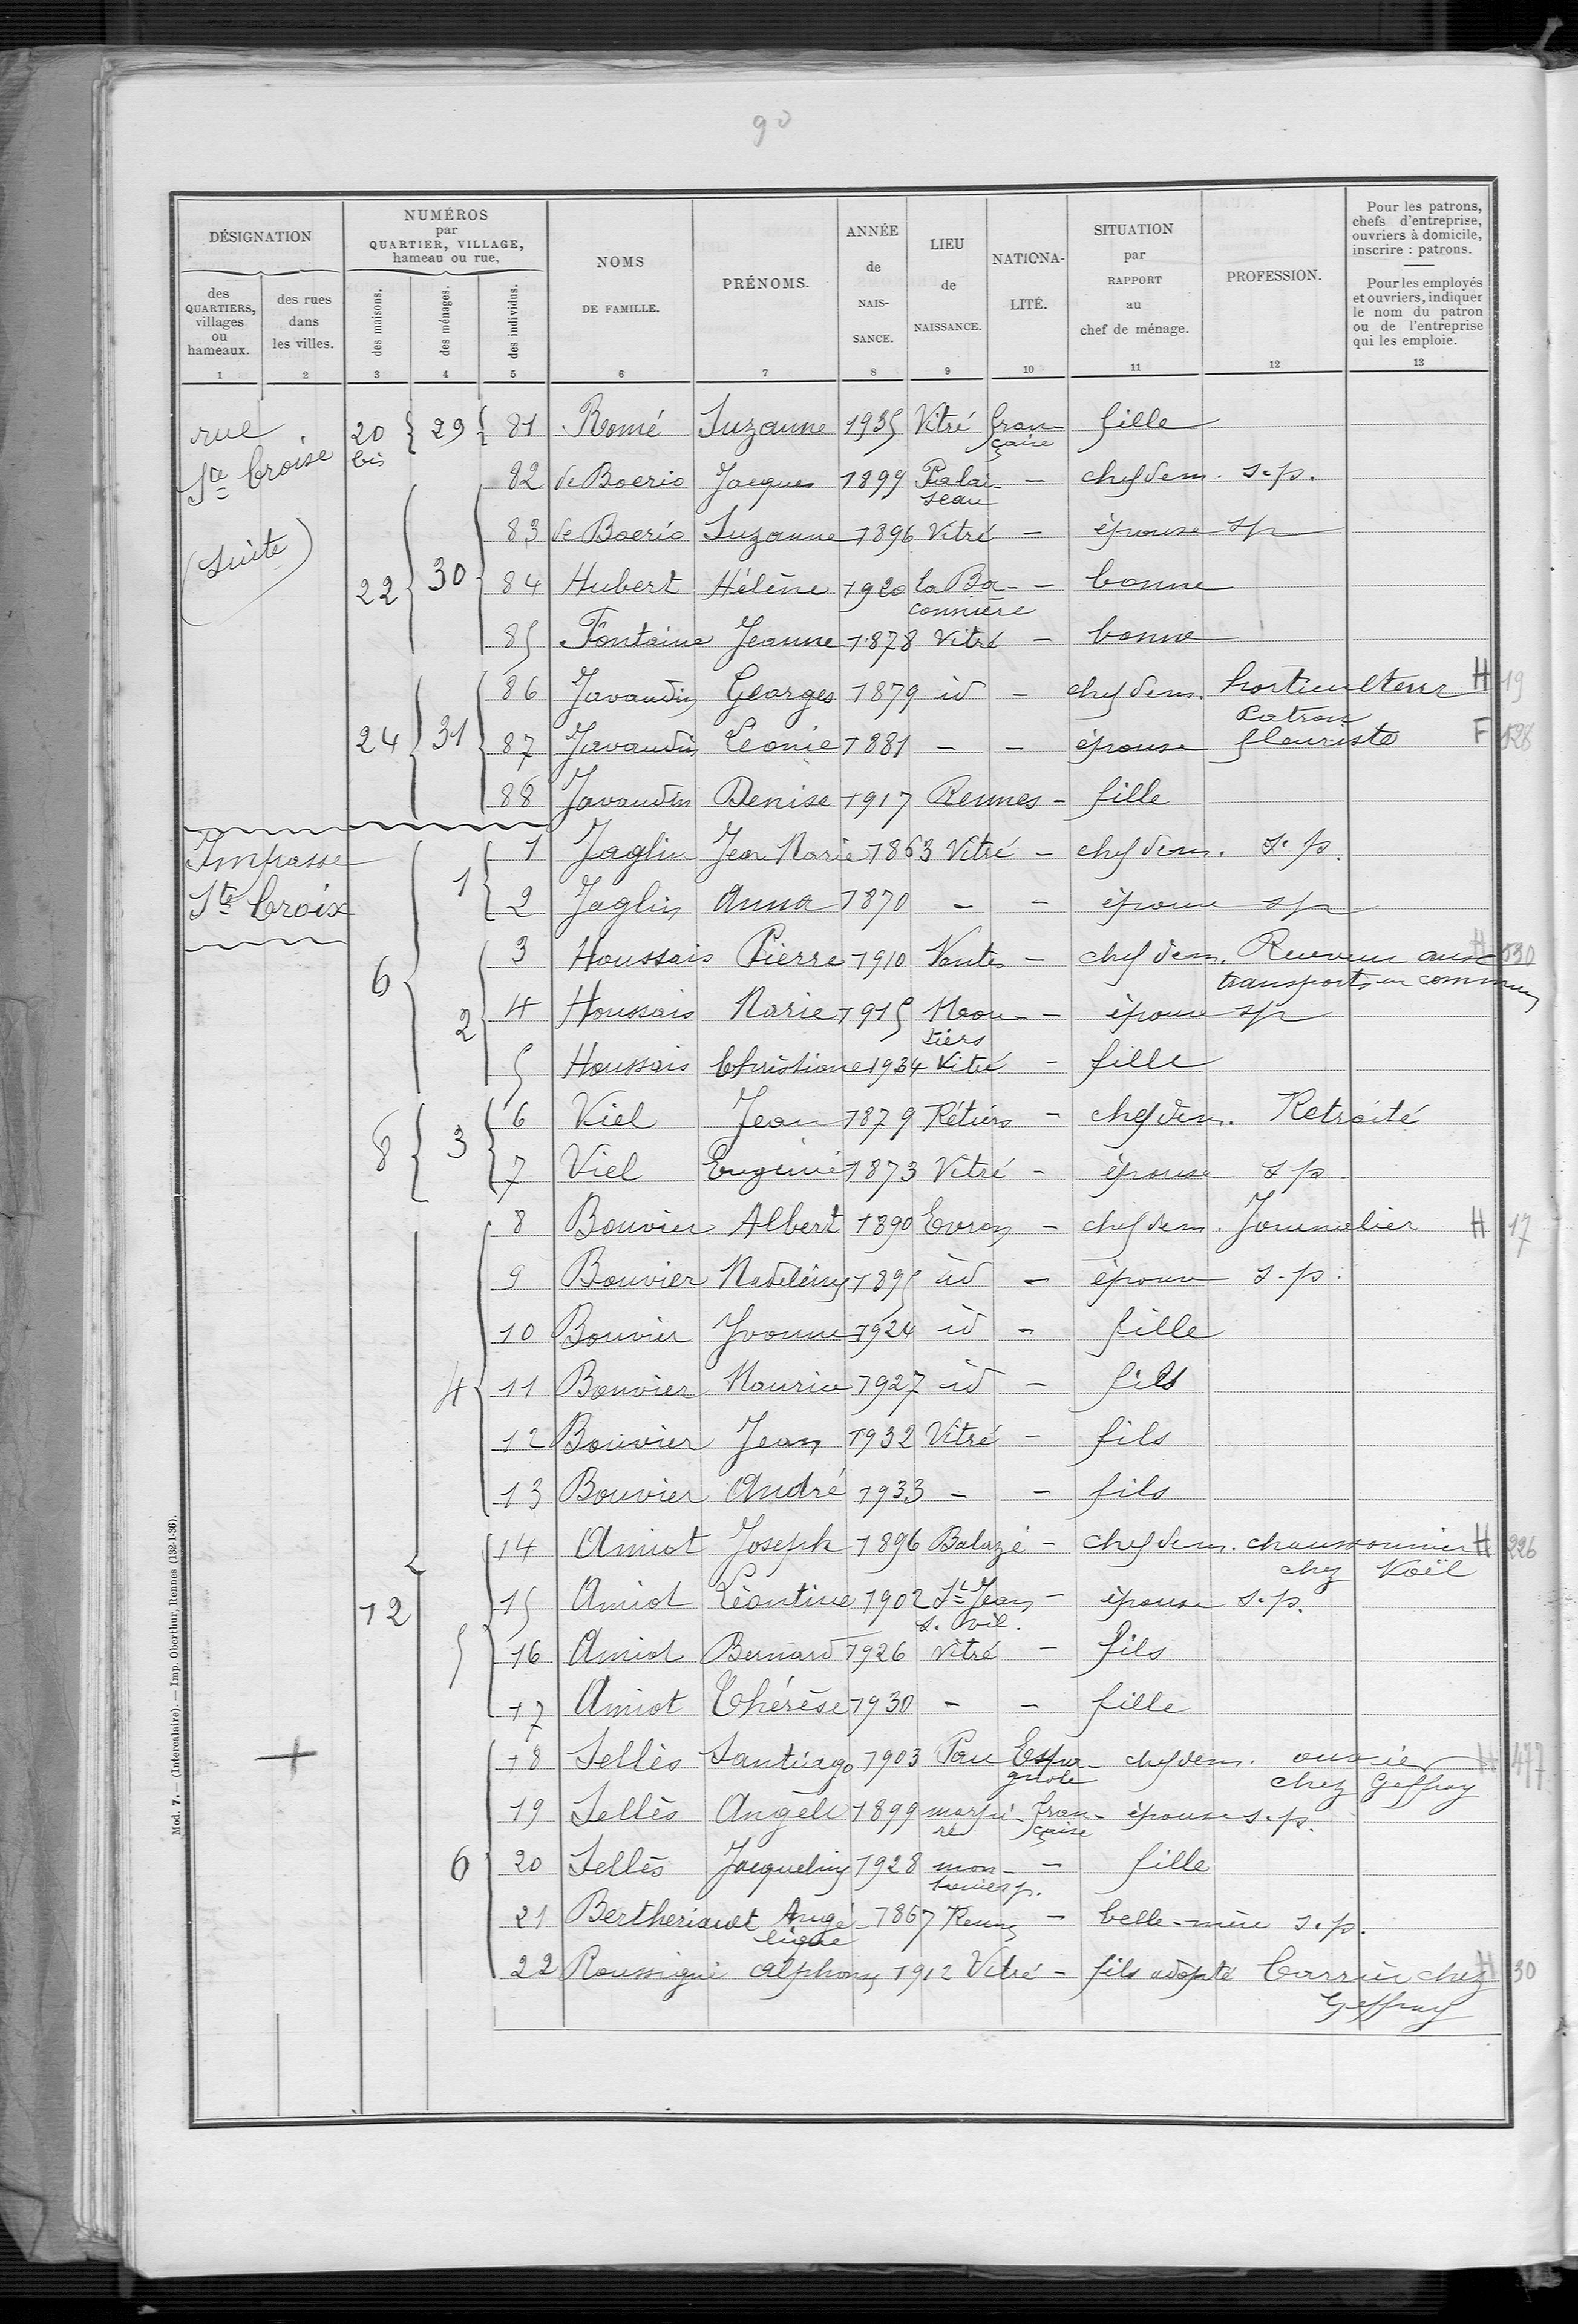 90
DÉSIGNATION
NUMÉROS
par
QUARTIER, VILLAGE,
hameau ou rue.
des QUARTIERS, villages ou hameaux.
des rues dans les villes.
des maisons.
des ménages.
des individus.
NOMS DE FAMILLE.
PRÉNOMS.
ANNÉE de NAIS-SANCE.
LIEU de NAISSANCE.
NATIONA-LITÉ.
SITUATION par RAPPORT au chef de ménage.
PROFESSION.
Pour les patrons, chefs d'entreprise, ouvriers à domicile, inscrire : patrons.
Pour les employés et ouvriers, indiquer le nom du patron ou de l'entreprise qui les emploie.
1 2 3 4 5 6 7 8 9 10 11 12 13
rue 20 29 81 Romé Suzanne 1935 Vitré fran-
Ste Croise bis çaise fille
82 de Boerio Jacques 1899 Palai- - chef de m. s.p.
seau
(suite) 83 de Boerio Suzanne 1896 Vitré - épouse sp
22 30 84 Hubert Hélène 1920 La Ba- - bonne
connière
85 Fontaine Jeanne 1878 Vitré - bonne
86 Javaudin Georges 1879 id - chef de m. horticulteur H 19
Patron
24 31 87 Javaudin Léonie 1881 - - épouse fleuriste F 528
88 Javaudin Denise 1917 Rennes - fille
Impasse 1 1 Jaglin Jean Marie 1863 Vitré - chef de m. s.p.
Ste Croix 2 Jaglin Anna 1870 - - épouse sp
6 3 Houssais Pierre 1910 Nantes - chef de m. Receveur aux H 530
transports en commun
2 4 Houssais Marie 1915 Mou- - épouse sp
tiers
5 Houssais Christiane 1934 Vitré - fille
8 3 6 Viel Jean 1879 Rétiers - chef de m. Retraité
7 Viel Eugénie 1873 Vitré - épouse sp.
8 Bouvier Albert 1890 Evron - chef de m. Journalier H 17
9 Bouvier Madeleine 1895 id - épouse s.p.
10 Bouvier Yvonne 1924 id - fille
4 11 Bouvier Maurice 1927 id - fils
12 Bouvier Jean 1932 Vitré - fils
13 Bouvier André 1933 - - fils
14 Amiot Joseph 1896 Balazé - chef de m. chaussonnier H 226
chez Noël
12 15 Amiot Léontine 1902 St Jean - épouse s.p.
s. Vil.
5 16 Amiot Bernard 1926 Vitré - fils
17 Amiot Thérèse 1930 - - fille
+ 18 Sellès Santiago 1903 Pau Espa- chef de m. ouvrier H 477
gnole chez Geffray
19 Sellès Angèle 1899 marpi- fran- épouse s.p.
ré çaise
6 20 Sellès Jacqueline 1928 mon- - fille
21 Bertheriault Angé- 1867 Rennes - belle-mère s.p.
lique
22 Roussigné Alphonse 1912 Vitré - fils adopté Carrier chez H 30
Geffray
Mod. 7. — (Intercalaire). — Imp. Oberthur, Rennes (132-1-36).